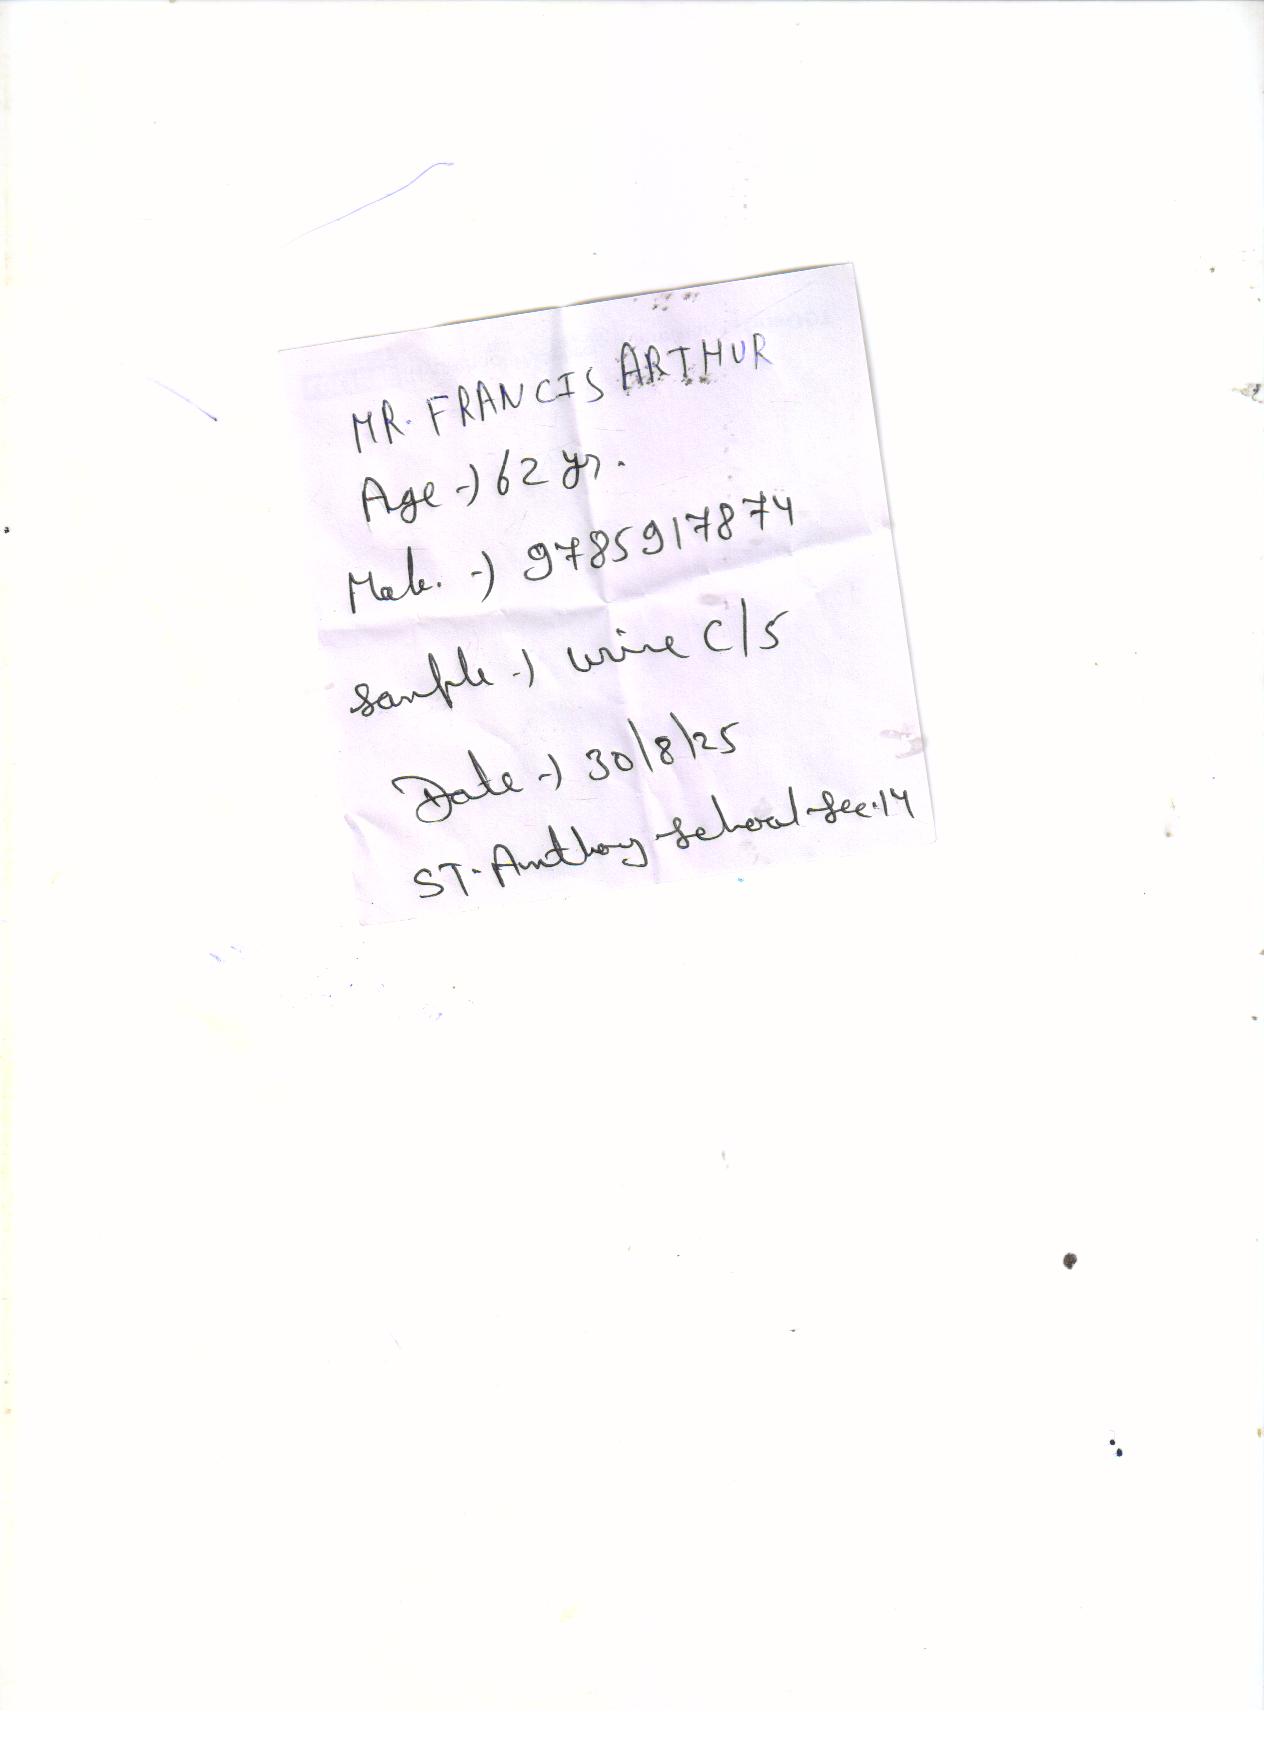 MR. FRANCIS ARTHUR
Age → 62 yr.
Male. → 9785917874
Sample → urine C/S
Date → 30/8/25
ST. Anthony School Sec. 14